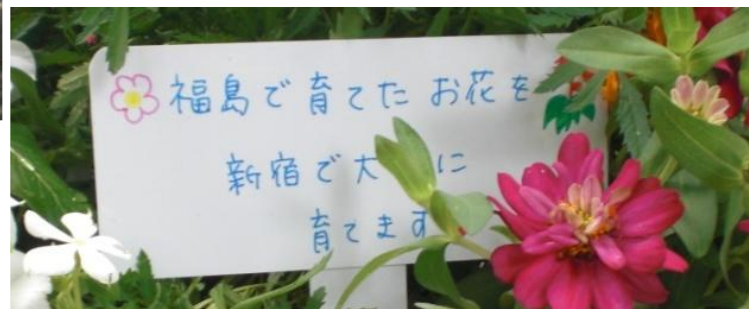 福島で育てたお花を
新宿で大 に
育てます